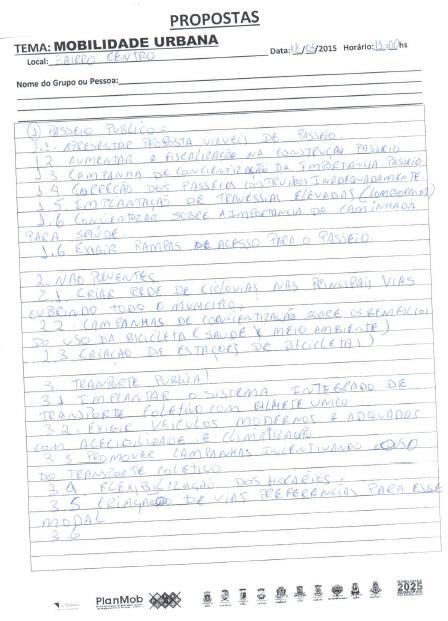 PROPOSTAS
TEMA: MOBILIDADE URBANA
Local: BAIRRO CENTRO Data: /05/2015 Horário: 19:00hs
Nome do Grupo ou Pessoa:
1) PASSEIO PUBLICO:
1.1 APRESENTAR PROPOSTA VIAVEL DE PASSEIO.
1.2 AUMENTAR A FISCALIZAÇÃO NA CONSTRUÇÃO PASSEIO
1.3 CAMPANHA DE CONCIENTIZAÇÃO DA IMPORTANCIA PASSEIO
1.4 CORREÇÃO DOS PASSEIOS CONSTRUIDOS INADEQUADAMENTE
1.5 IMPLANTAÇÃO DE TRAVESSIAS ELEVADAS (LOMBOFAIXA)
1.6 CONCIENTIZAR SOBRE A IMPORTANCIA DA CAMINHADA
PARA SAUDE.
1.6 EXIGIR RAMPAS DE ACESSO PARA O PASSEIO.
2. NÃO POLUENTES
2.1 CRIAR REDE DE CICLOVIAS NAS PRINCIPAIS VIAS
CUBRINDO TODO O MUNICIPIO;
2.2. CAMPANHAS DE CONCIENTIZAÇÃO SOBRE OS BENEFICIOS
DO USO DA BICICLETA (SAUDE E MEIO AMBIENTE)
2.3 CRIAÇÃO DE ESTAÇÕES DE BICICLETAS)
3. TRANSPORTE PUBLICO
3.1 IMPLANTAR O SISTEMA INTEGRADO DE
TRANSPORTE COLETIVO COM BILHETE UNICO
3.2. EXIGIR VEICULOS MODERNOS E ADQUADOS
COM ACECIBILIDADE E CLIMATIZAÇÃO
3.3 PROMOVER CAMPANHAS INCENTIVANDO O USO
DO TRANSPORTE COLETIVO
3.4 FLEXIBILIZAÇÃO DOS HORARIOS.
3.5 CRIAÇÃO DE VIAS PREFERENCIAS PARA ESSE
MODAL
3.6
PlanMob
2025